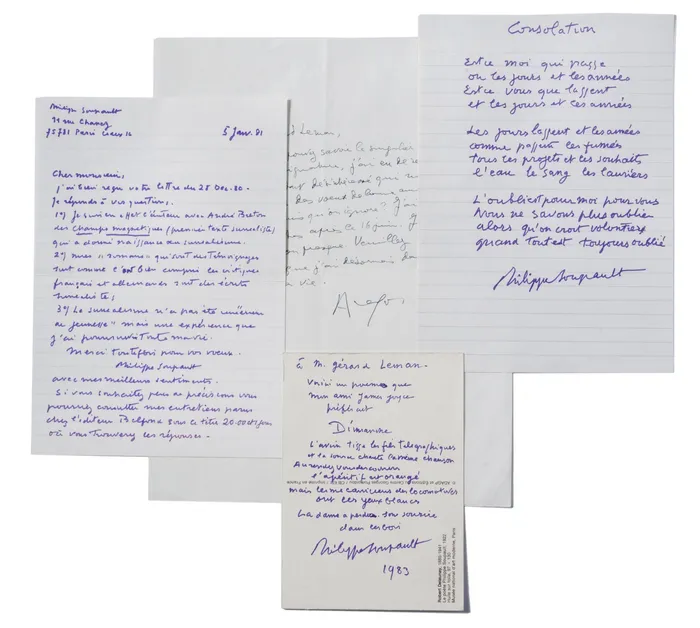 Philippe Soupault
11 rue Chanez
75781 Paris Cedex 16
5 Janv. 81
Cher monsieur,
j'ai bien reçu votre lettre du 28 Dec. 80.
Je réponds à vos questions,
1º) Je suis en effet l'auteur avec André Breton
des champs magnétiques (premier texte surréaliste)
qui a donné naissance au surréalisme.
2º) mes "romans" qui sont des témoignages
sont comme l'ont bien compris les critiques
français et allemands sont des écrits
surréalistes;
3º) Le surréalisme n'a pas été un
de jeunesse" mais une expérience que
j'ai poursuivi toute ma vie.
Merci toutefois pour vos voeux.
Philippe Soupault
avec mes meilleurs sentiments.
Si vous souhaitez plus de précisions vous
pourrez consulter mes entretiens parus
chez l'éditeur Belfond sous ce titre 20.000 et 1 jours
où vous trouverez les réponses.
Leman,
savoir le singulier
signature, j'ai eu de
des voeux de bonne
que on ignore? j'ai
après le 16 juin.
presque. Veuillez
que j'ai désormais
vie.
Arago.
Consolation
Est ce moi qui passe
ou les jours et les années
Est ce vous que lassent
et les jours et ces années
Les jours lassent et les années
comme passent les fumées
tous les projets et les souhaits
l'eau le sang les lauriers
L'oubli est pour moi pour vous
Nous ne savons plus oublier
alors qu'on croit volontiers
quand tout est toujours oublié
Philippe Soupault
à M. Gérard Leman.
Voici un poème que
mon ami James Joyce
préférait
Dimanche
L'avion tisse les fils télégraphiques
et la source chante la même chanson
Au rendez vous des cochers
l'apéritif est orangé
mais les mécaniciens des locomotives
ont les yeux blancs
La dame a perdu son sourire
dans les bois
Philippe Soupault
1983
Robert Delaunay, 1885-1941
Le poète Philippe Soupault, 1922
Huile sur toile, 197 × 130
Musée national d'art moderne, Paris